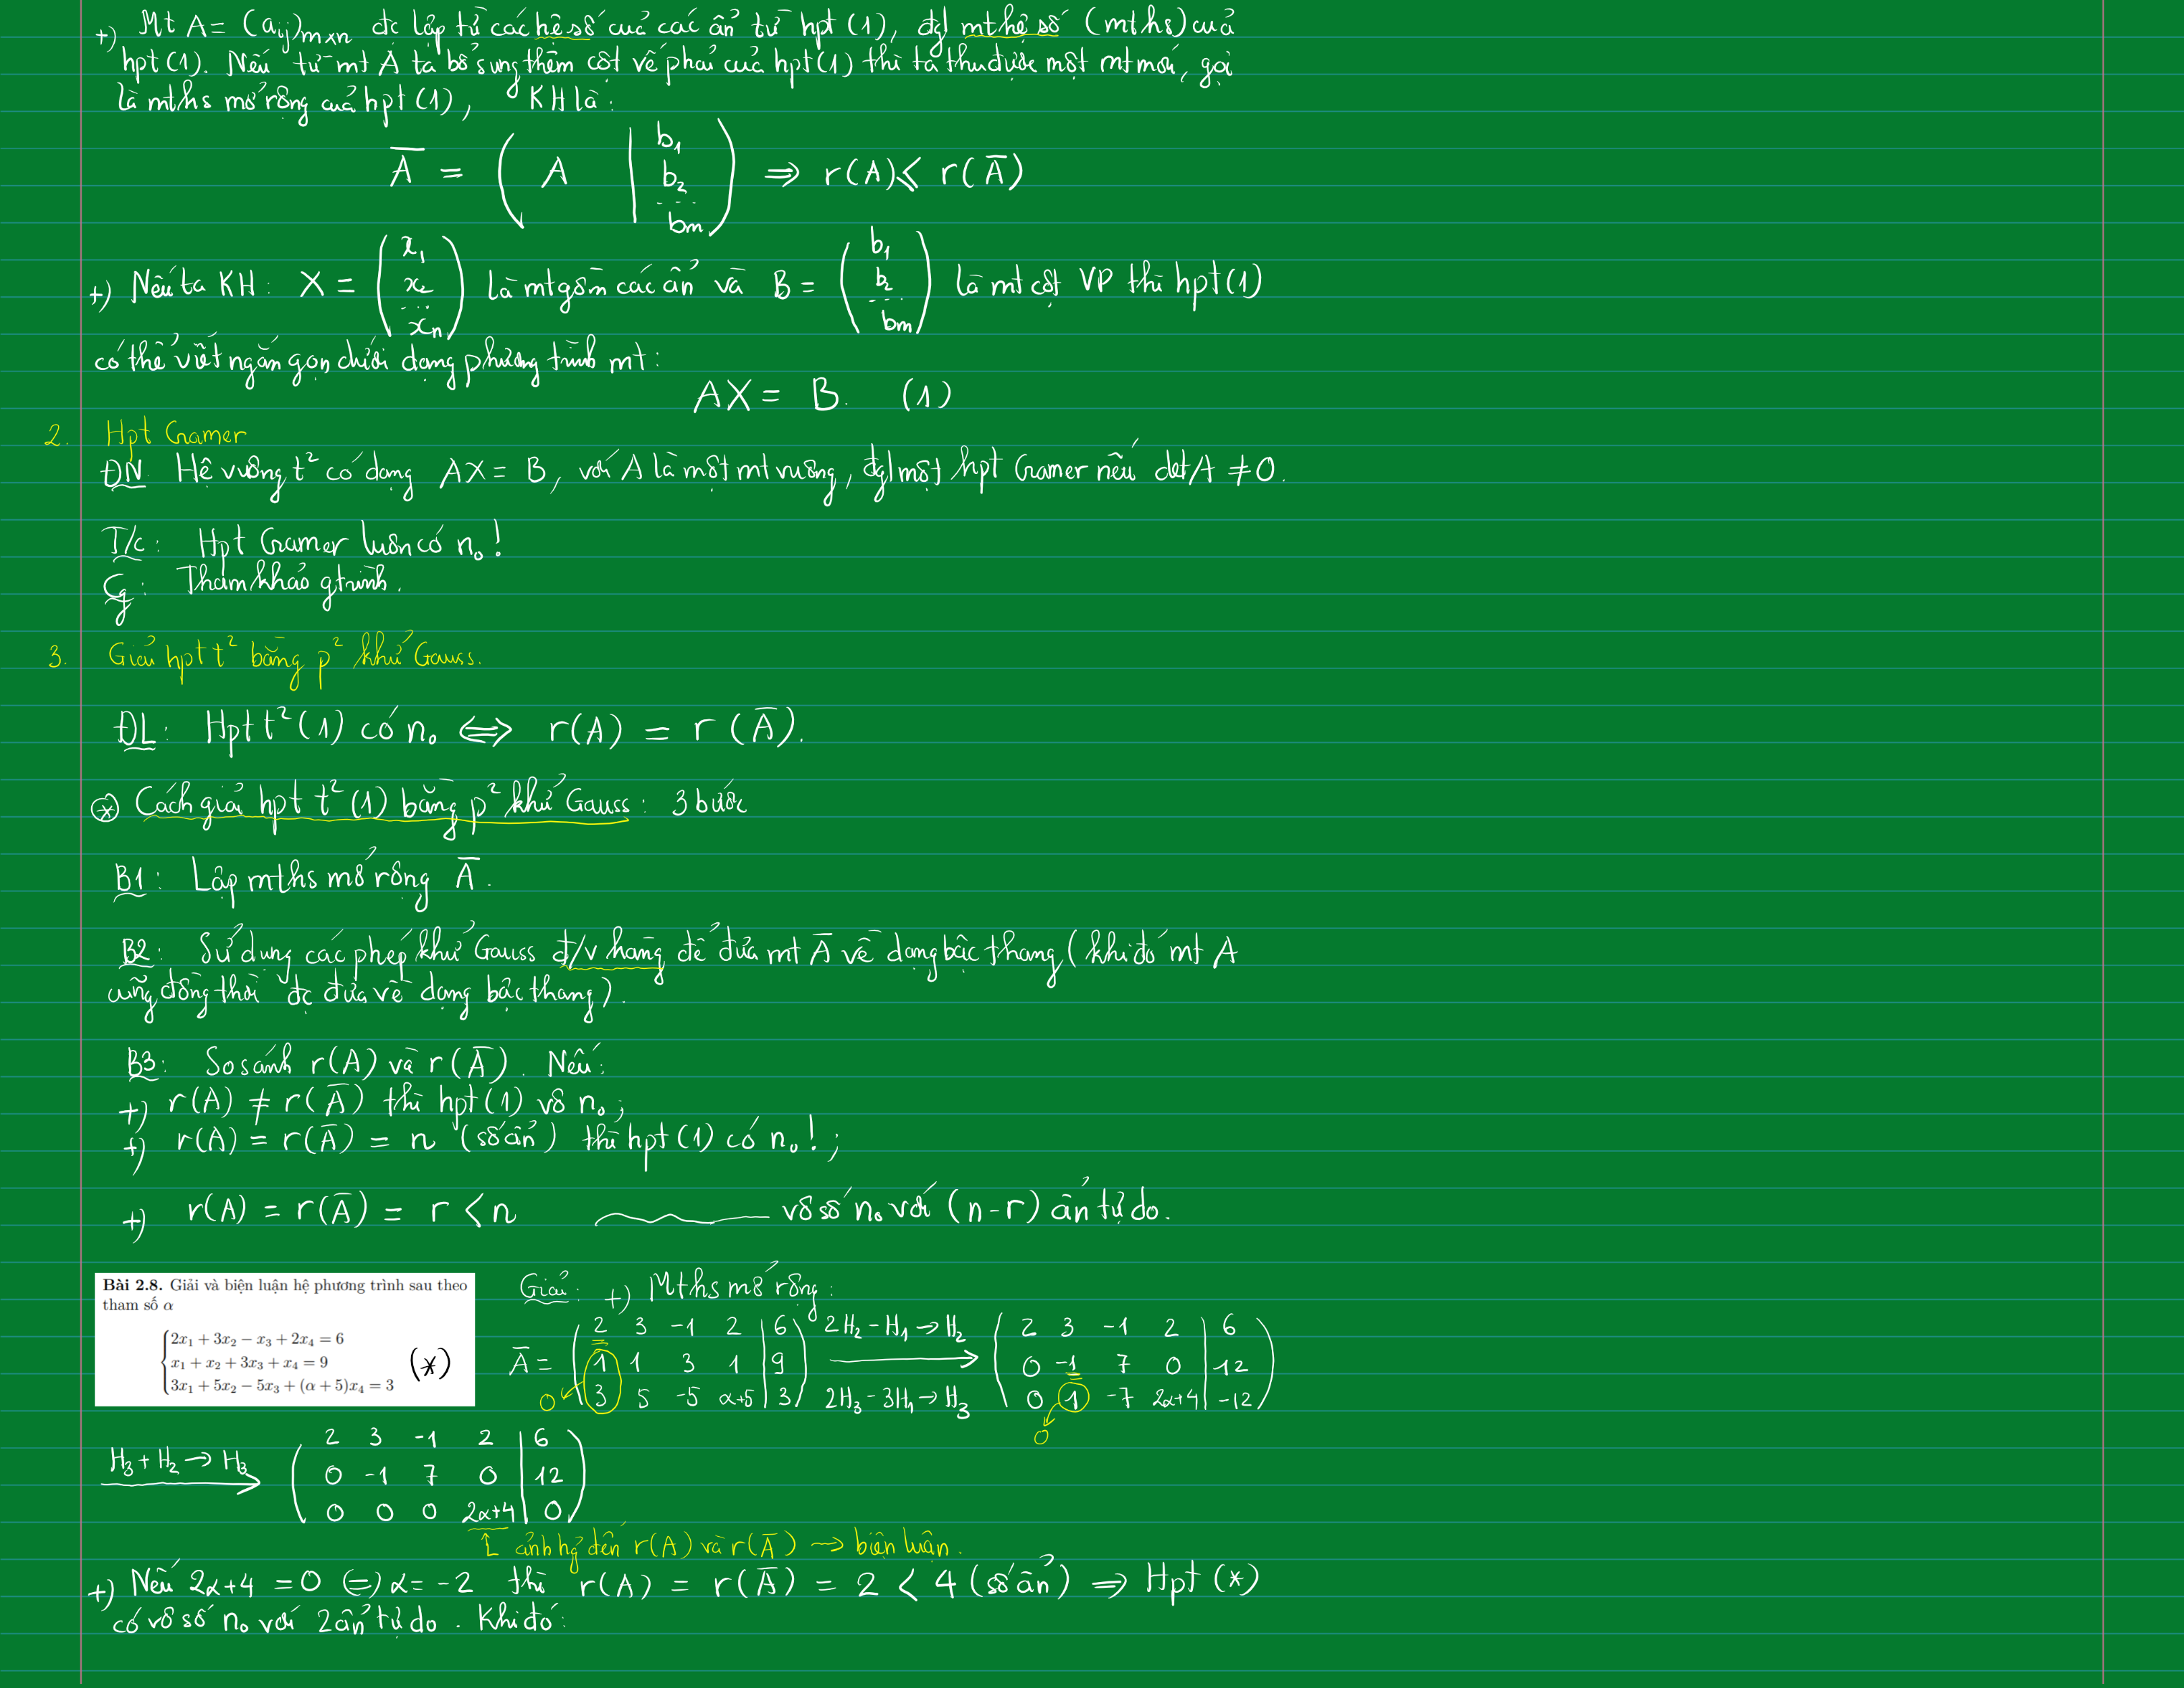 +) Mt A = (aij)mxn đc lập từ các hệ số của các ẩn từ hpt (1), đgl mt hệ số (mths) của
hpt (1). Nếu từ mt A ta bổ sung thêm cột vế phải của hpt (1) thì ta thu được một mt mới, gọi
là mths mở rộng của hpt (1), KH là:
A̅ = ( A | b₁ b₂ ... bm ) ⇒ r(A) ⩽ r(A̅)
+) Nếu ta KH: X = ( x₁ x₂ ... xn ) là mt gồm các ẩn và B = ( b₁ b₂ ... bm ) là mt cột VP thì hpt (1)
có thể viết ngắn gọn dưới dạng phương trình mt:
AX = B. (1)
2. Hpt Cramer
ĐN Hệ vuông t² có dạng AX = B, với A là một mt vuông, đgl một hpt Cramer nếu det A ≠ 0.
T/c: Hpt Cramer luôn có n₀!
Cg: Tham khảo gtrình.
3. Giải hpt t² bằng p² khử Gauss.
ĐL: Hpt t² (1) có n₀ ⟺ r(A) = r(A̅).
⊛ Cách giải hpt t² (1) bằng p² khử Gauss: 3 bước
B1: Lập mths mở rộng A̅.
B2: Sử dụng các phép khử Gauss đ/v hàng để đưa mt A̅ về dạng bậc thang (khi đó mt A
cũng đồng thời đc đưa về dạng bậc thang).
B3: So sánh r(A) và r(A̅). Nếu:
+) r(A) ≠ r(A̅) thì hpt (1) vô n₀;
+) r(A) = r(A̅) = n (số ẩn) thì hpt (1) có n₀!;
+) r(A) = r(A̅) = r < n ——— vô số n₀ với (n-r) ẩn tự do.
Bài 2.8. Giải và biện luận hệ phương trình sau theo
tham số α
2x₁ + 3x₂ − x₃ + 2x₄ = 6
x₁ + x₂ + 3x₃ + x₄ = 9
3x₁ + 5x₂ − 5x₃ + (α + 5)x₄ = 3
(*)
Giải: +) Mths mở rộng:
2 3 -1 2 | 6 2H₂ - H₁ → H₂ 2 3 -1 2 | 6
A̅ = 1 1 3 1 | 9 0 -1 7 0 | 12
0 3 5 -5 α+5 | 3 2H₃ - 3H₁ → H₃ 0 1 -7 2α+4 | -12
0
2 3 -1 2 | 6
H₃ + H₂ → H₃ 0 -1 7 0 | 12
0 0 0 2α+4 | 0
ảnh hg đến r(A) và r(A̅) → biện luận.
+) Nếu 2α+4 = 0 ⇔ α = -2 thì r(A) = r(A̅) = 2 < 4 (số ẩn) ⇒ Hpt (*)
có vô số n₀ với 2 ẩn tự do. Khi đó: